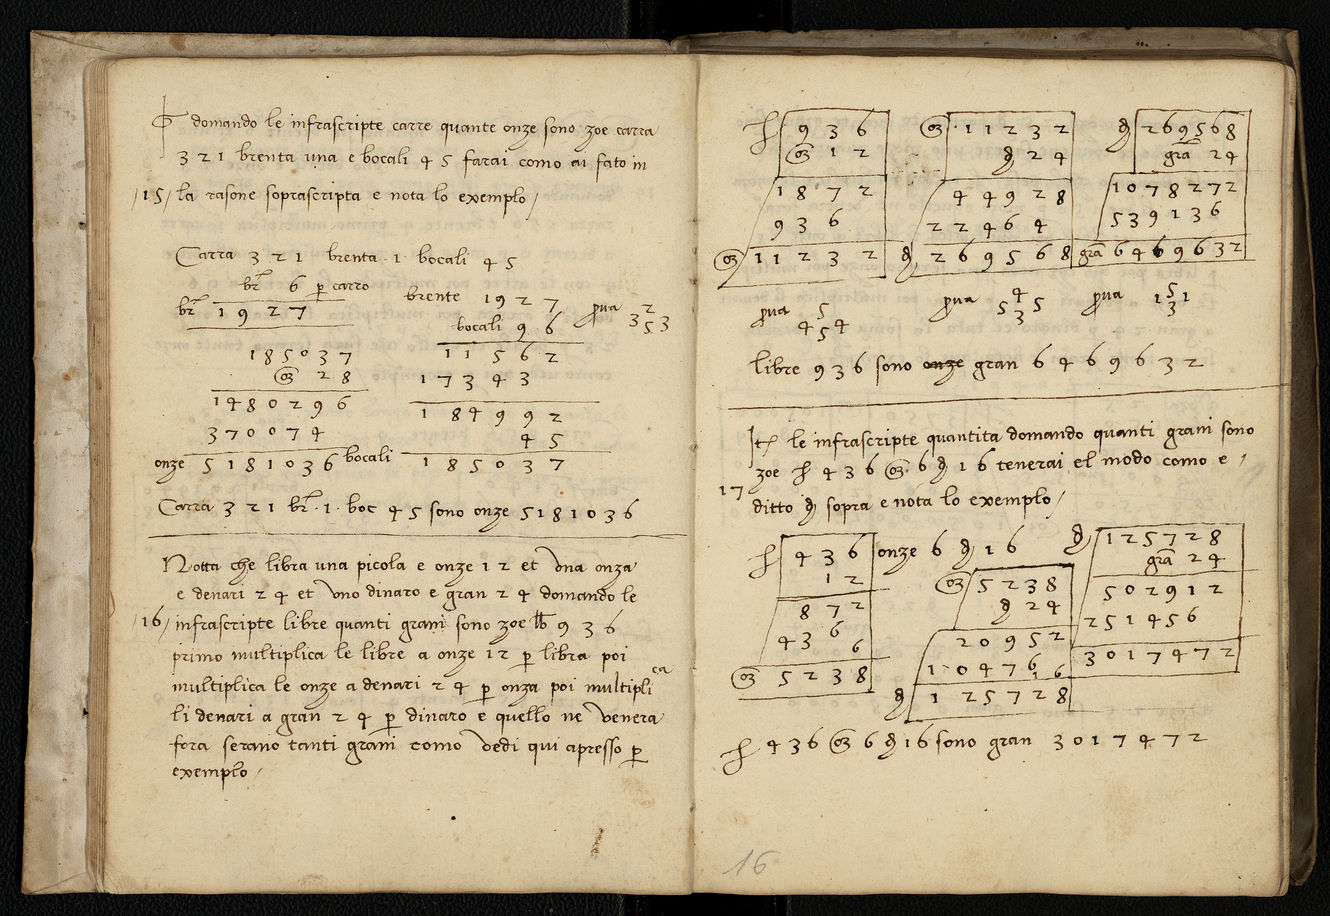 domando le infrascripte carre quante onze sono zoe carra
3 2 1 brenta una e bocali 4 5 farai como ai fato in
/15/ la rasone soprascripta e nota lo exemplo /
Carra 3 2 1 brenta · 1 · bocali 4 5
br 6 p carro
br 1 9 2 7
brente 1 9 2 7
bocali 9 6
1 1 5 6 2
1 7 3 4 3
1 8 4 9 9 2
4 5
bocali 1 8 5 0 3 7
prva 2
3 3
5
1 8 5 0 3 7
oz 2 8
1 4 8 0 2 9 6
3 7 0 0 7 4
onze 5 1 8 1 0 3 6
Carra 3 2 1 br · 1 · boc 4 5 sono onze 5 1 8 1 0 3 6
Notta che libra una picola e onze 1 2 et vna onza
e denari 2 4 et vno dinaro e gran 2 4 domando le
/16/ infrascripte libre quanti grani sono zoe lb 9 3 6
primo multiplica le libre a onze 12 p libra poi
multiplica le onze a denari 2 4 p onza poi multipli
ca
li denari a gran 2 4 p dinaro e quello ne venera
fora serano tanti grani como vedi qui apresso p
exemplo /
9 3 6
oz 1 2
1 8 7 2
9 3 6
oz 1 1 2 3 2
oz · 1 1 2 3 2
d 2 4
4 4 9 2 8
2 2 4 6 4
d 2 6 9 5 6 8
d 2 6 9 5 6 8
gra 2 4
1 0 7 8 2 7 2
5 3 9 1 3 6
gra 6 4 6 9 6 3 2
prva 5
4 4
5
prva 4
5 5
3
prva 5
1 1
3
libre 9 3 6 sono onze gran 6 4 6 9 6 3 2
It le infrascripte quantita domando quanti grani sono
zoe 4 3 6 oz · 6 d 1 6 tenerai el modo como e /
17 ditto d sopra e nota lo exemplo /
4 3 6 onze 6 d 1 6
1 2
8 7 2
4 3 6
6
oz 5 2 3 8
oz 5 2 3 8
d 2 4
2 0 9 5 2
1 0 4 7 6
1 6
d 1 2 5 7 2 8
d 1 2 5 7 2 8
gra 2 4
5 0 2 9 1 2
2 5 1 4 5 6
3 0 1 7 4 7 2
4 3 6 oz 6 d 1 6 sono gran 3 0 1 7 4 7 2
16